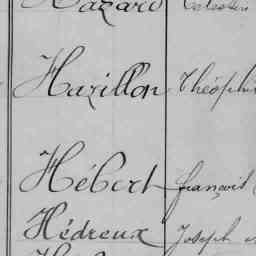 Hazard
Harillon Théophi
Hébert François
Hédreux Joseph